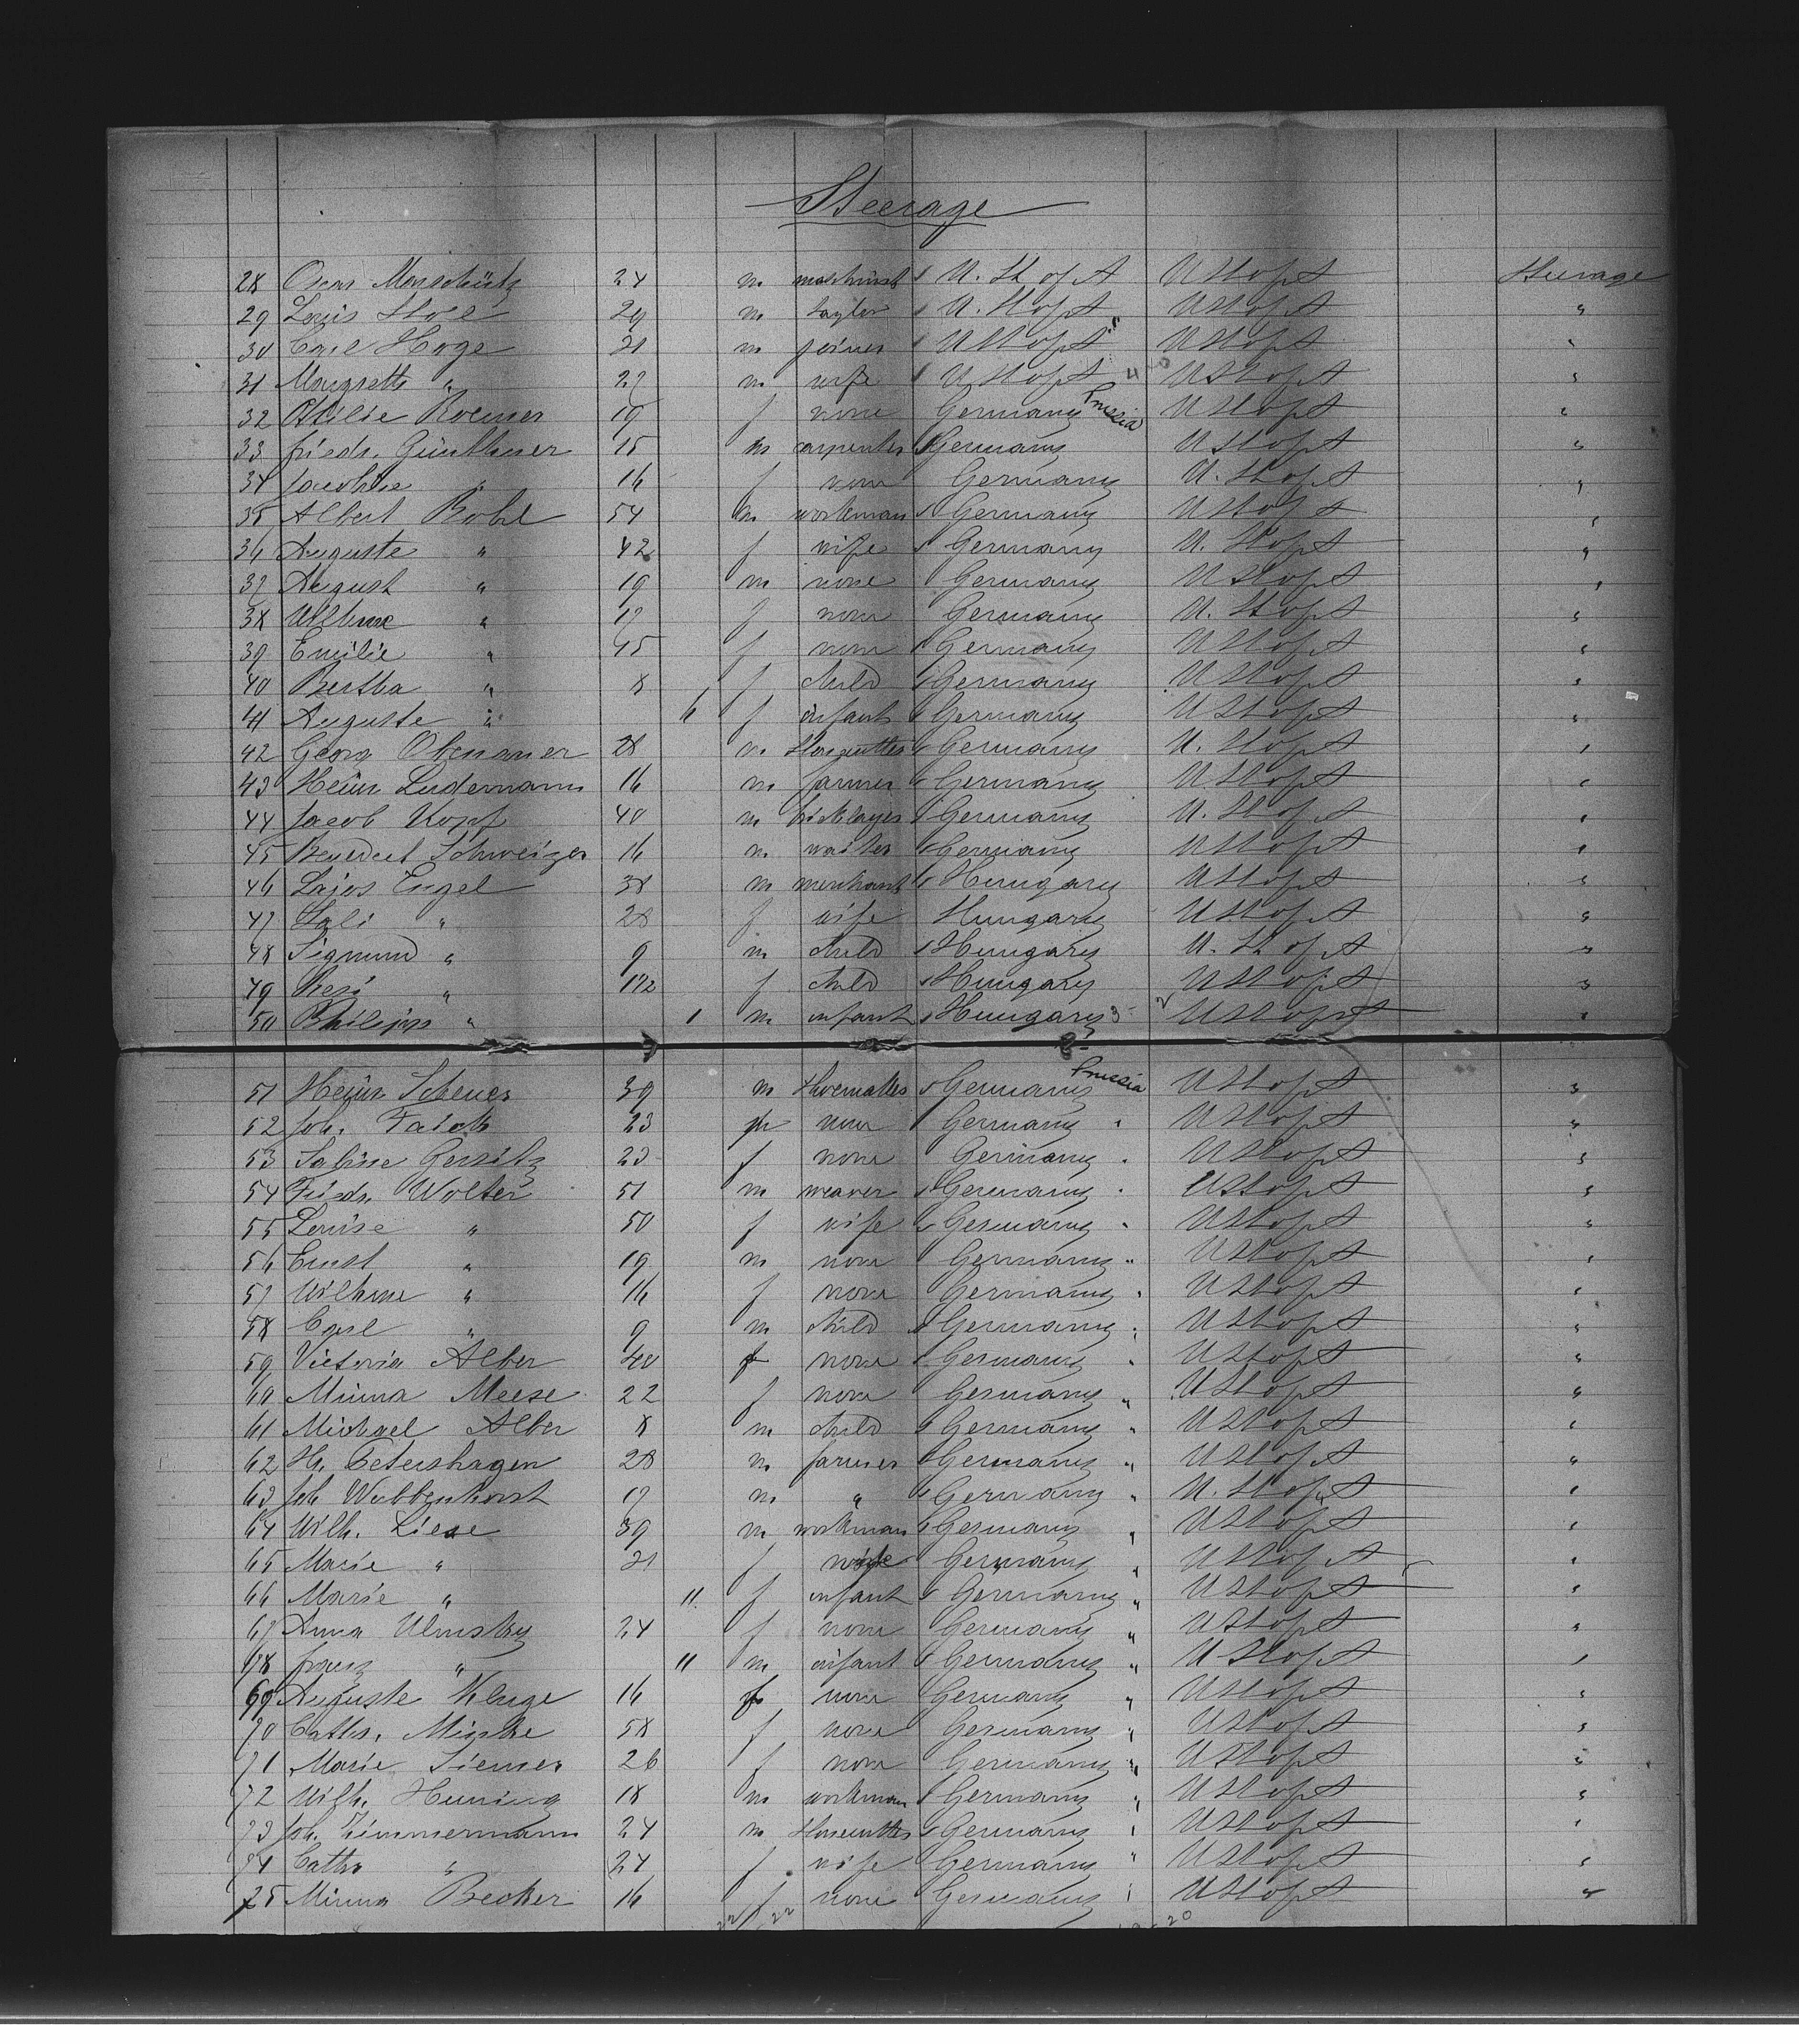 Steerage
28 Oscar 24 m machinist U. St of A U St of A Steerage
29 Louis 29 m taylor U. St of A U St of A "
30 Carl Hoge 21 m joiner U St of A " U St of A "
31 " 27 m wife U St of A " U St of A "
32 Ottilie Roemer 19 f none Germany Prussia U St of A "
33 friedr. Günthner 15 m carpenter Germany U St of A "
34 " 16 f none Germany U. St of A "
35 Albert Bohl 54 m workman Germany U St of A "
36 Auguste " 42 f wife Germany U. St of A "
37 August " 19 m none Germany U St of A "
38 " 17 f none Germany U. St of A "
39 Emilie " 45 f none Germany U St of A "
40 Bertha " 8 f child Germany U St of A "
41 Auguste " 6 f infant Germany U St of A "
42 Georg Obenauer 28 m Germany U. St of A "
43 Heinr Ludemann 16 m farmer Germany U St of A "
44 Jacob Kopf 40 m bricklayer Germany U. St of A "
45 Benedict Schweizer 16 m waiter Germany U St of A "
46 Lajos Engel 38 m merchant Hungary U St of A "
47 Sali " 28 f wife Hungary U St of A "
48 Sigmund " 9 m child Hungary U. St of A "
49 Resi " f child Hungary U St of A "
50 Philipp " 1 m infant Hungary U St of A "
51 Heinr Scheuer 39 m Shoemaker Germany Prussia U St of A "
52 Joh. 23 none Germany " U St of A "
53 Sabine 23 f none Germany " U St of A "
54 Friedr. Wolter 51 m weaver Germany " U St of A "
55 Louise " 50 f wife Germany " U St of A "
56 Ernst " 19 m none Germany " U St of A "
57 Wilhme " 16 f none Germany " U St of A "
58 Carl " 9 m child Germany " U St of A "
59 Victoria Alber 40 f none Germany " U St of A "
60 Minna Meese 22 f none Germany " U St of A "
61 Michael Alber 8 m child Germany " U St of A "
62 H. Petershagen 28 m farmer Germany " U St of A "
63 Joh Wubbenhorst 17 m " Germany " U. St of A "
64 Wilh. Liese 39 m workman Germany " U St of A "
65 Marie " 21 f wife Germany " U St of A "
66 Marie " 11 f infant Germany " U St of A "
67 Anna 24 f none Germany " U St of A "
68 franz " 11 m infant Germany " U St of A "
69 Auguste Kluge 16 f none Germany " U St of A "
70 Cathr. 58 f none Germany " U St of A "
71 Marie Siemer 26 f none Germany " U St of A "
72 Wilh. Huning 18 m workman Germany " U St of A "
73 Joh. Zimmermann 24 m Germany " U St of A "
74 Cathr " 24 f wife Germany " U St of A "
75 Minna Becker 16 f none Germany " U St of A "